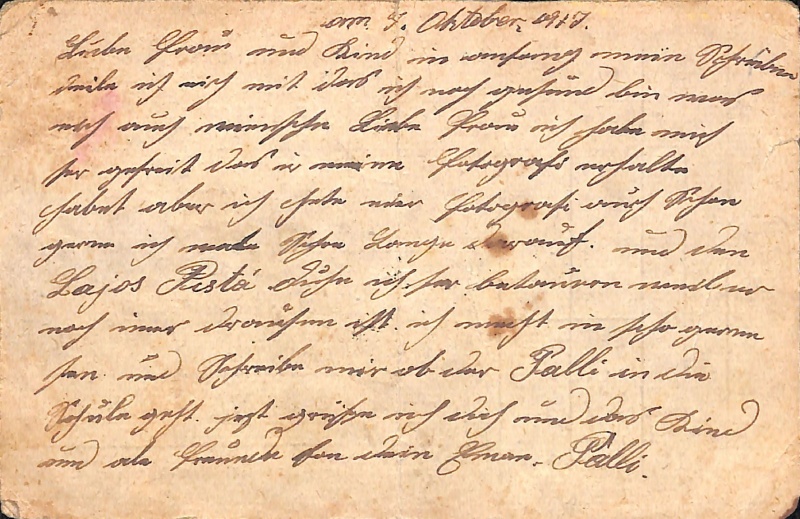 am 7. Oktober. 1917.
Liebe Frau und Kind in anfang mein Schreiben
teile ich eich mit das ich noch gesund bin was
eich auch winsche Liebe Frau ich habe mich
ser gefreit das ir meine Fotografi erhalte
habet aber ich hete eier fotografi auch Schon
gerne ich warte Schon Lange darauf. und den
Lajos Pistá duhe ich ser betauren weil er
noch imer drausen ist. ich mecht in scho gerne
sen. und Schreibe mir ob der Palli in die
Schule geht. jezt grüsse ich dich und das Kind
und ale Freunde fon dein Eman. Palli.